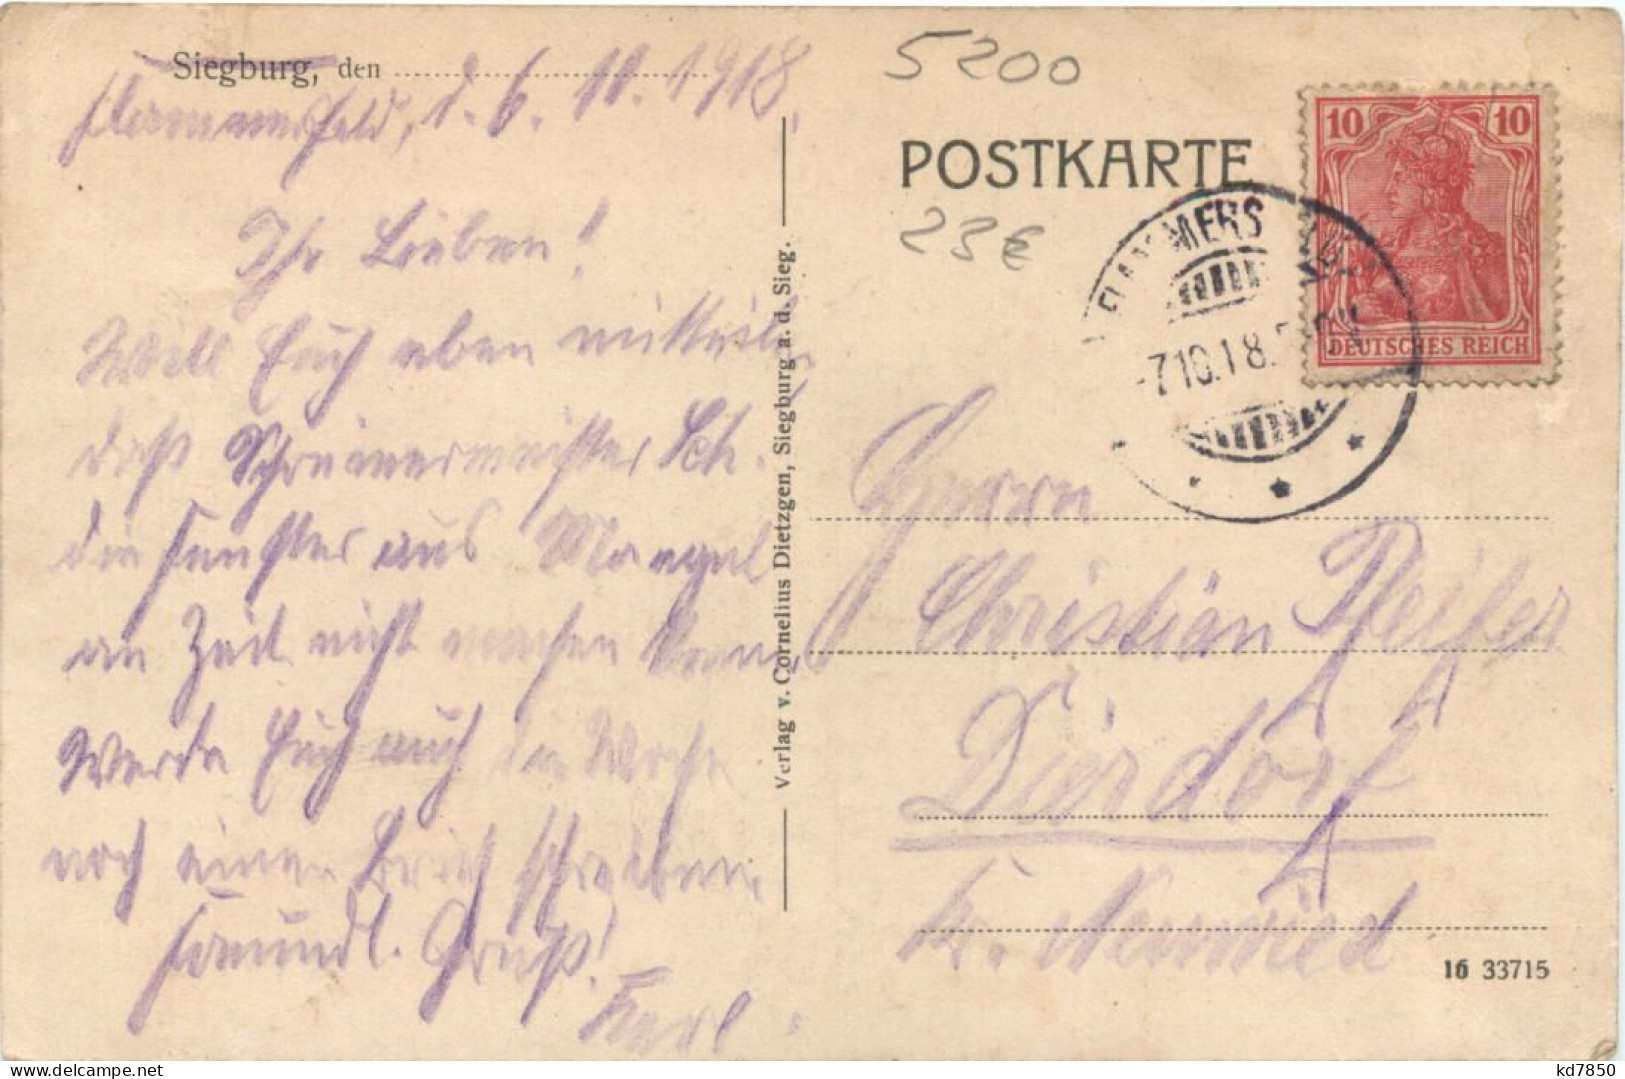 Siegburg, den
Flammersfeld, d. 6. 10. 1918.
Ihr Lieben!
Will Euch eben mitteilen
daß Schreinermeister Sch.
die Fenster aus Mangel
an Zeit nicht machen kann.
Werde Euch auch die Woche
noch einen Brief schreiben.
Freundl. Gruß!
Karl
Verlag v. Cornelius Dietzgen, Siegburg a. d. Sieg.
5200
POSTKARTE
23€
10 10
DEUTSCHES REICH
FLAMMERSFELD
-7.10.18.
Herrn
Christian Pfeifer
Dierdorf
Kr. Neuwied
16 33715
kd7850